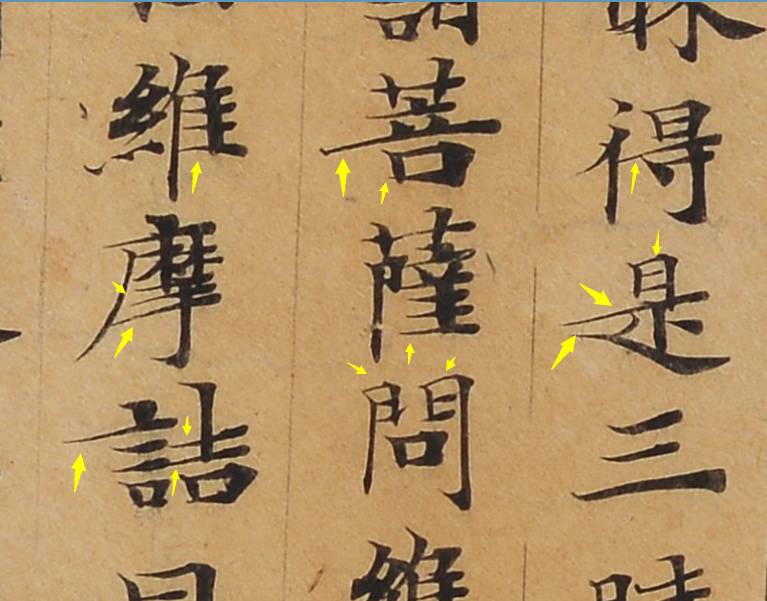 得是三時
菩薩問維
維摩詰